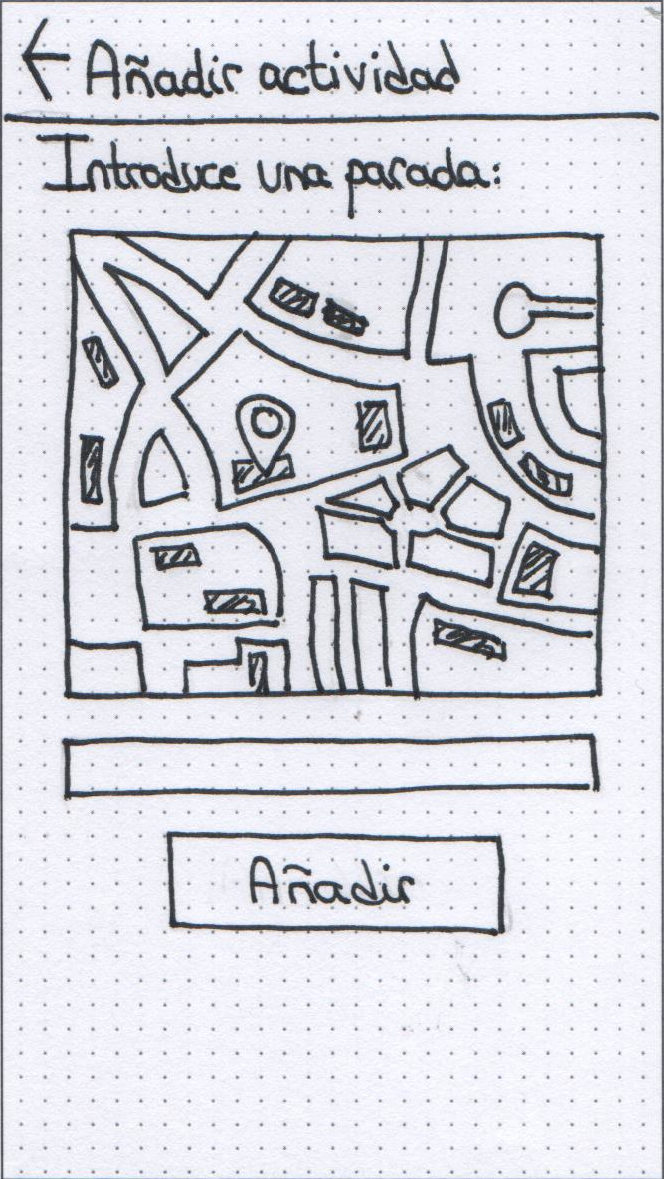 ← Añadir actividad
Introduce una parada:
Añadir